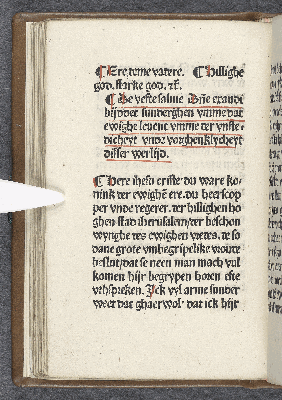 ¶ Ere tome vatere. ¶ hillighe
god. starke god. ꝛc̄.
¶ De veste salme Dn̄e exaudi
bijddet sunderghen vmme dat
ewighe leuent vmme ter vnste
dicheyt vnde vorghenklycheyt
disser werlt.
¶ here ihesu criste du ware ko⸗
nink ter ewighē ere. du heerscop
per vnde regerer. ter hillighen ho
ghen stad iherusalem ter beschou
wynghe tes ewighen vretes. te so
dane grote vmbegripelike wonte
beslut dat se neen man mach vul
komen hijr begrypen horen ofte
vthspreken. Ick vyl arme sunder
weet dat ghaer wol dat ick hijr